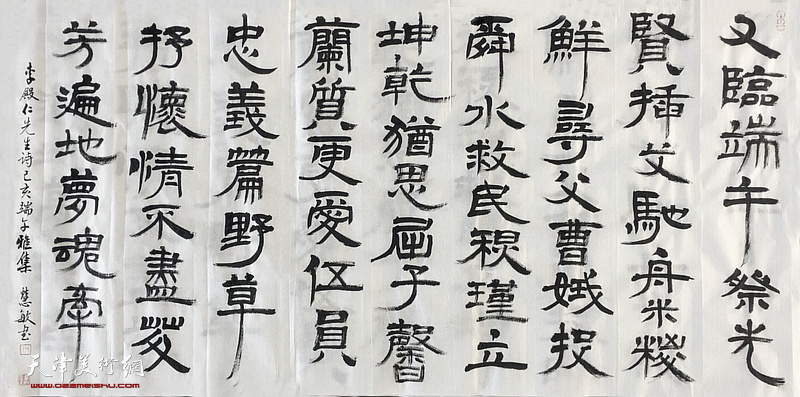 又臨端午祭先
賢插艾馳舟米糉
鮮尋父曹娥投
舜水救民瑾立
坤乾猶思屈子馨
蘭質更愛伍員
忠義篇野草
抒懷情不盡艾
芳遍地夢魂牽
李殿仁先生诗己亥端午雅集 慧敏书
天津美术網
www.022meishu.com